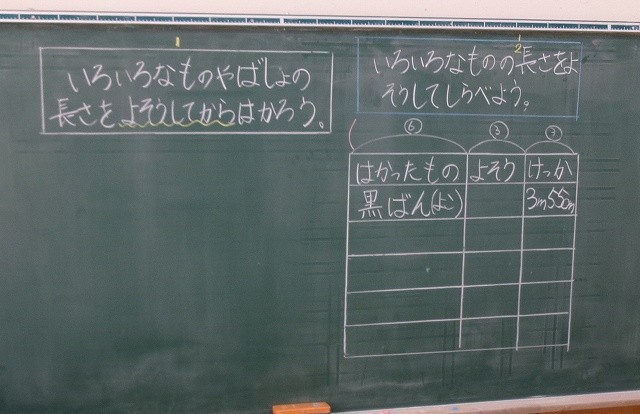 1
いろいろなものやばしょの
長さをよそうしてからはかろう。
2
いろいろなものの長さをよ
そうしてしらべよう。
⑥ ③ ③
はかったもの よそう けっか
黒ばん(よこ) 3m55cm